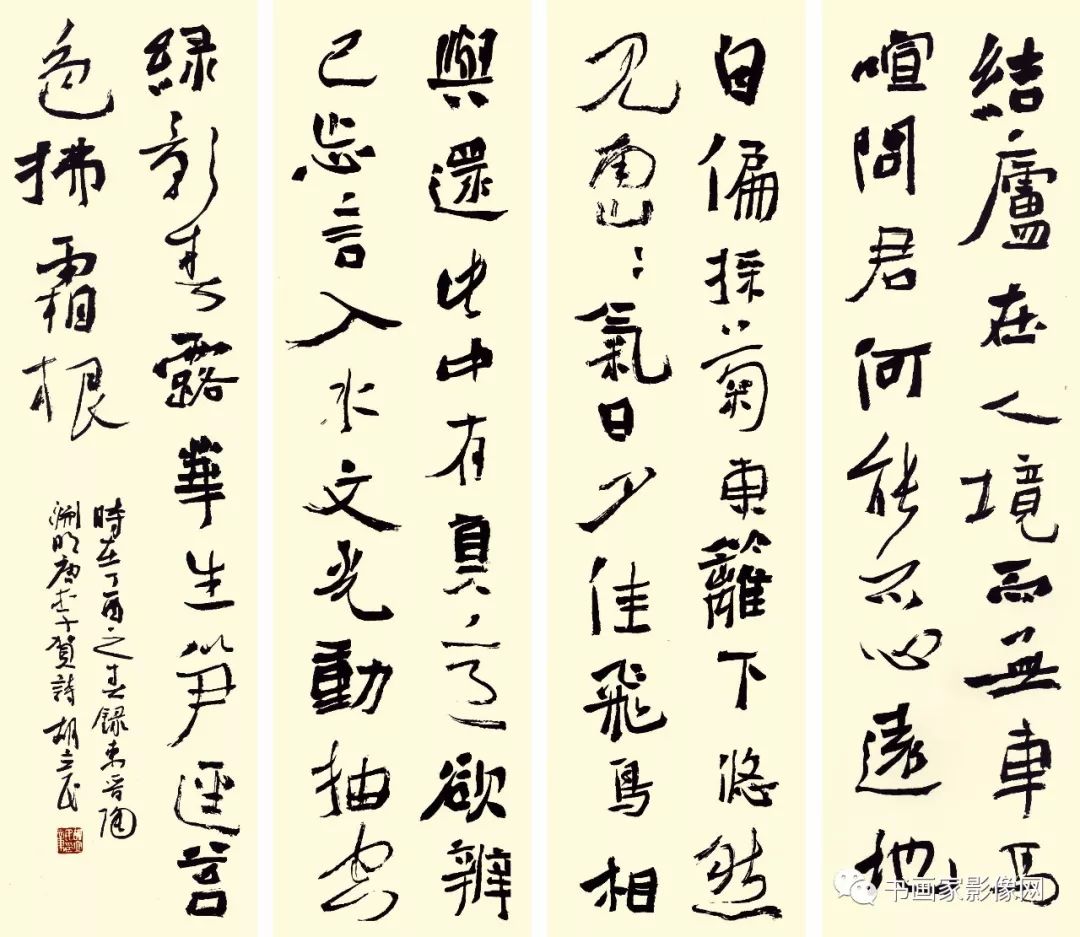 結廬在人境而無車馬
喧問君何能尔心遠地
自偏採菊東籬下悠然
見南山〻氣日夕佳飛鳥相
與還此中有真意欲辨
已忘言入水文光動抽空
綠影春露華生笋徑苔
色拂霜根
時在丁酉之春錄東晉陶
淵明唐李賀詩胡立民
书画家影像网